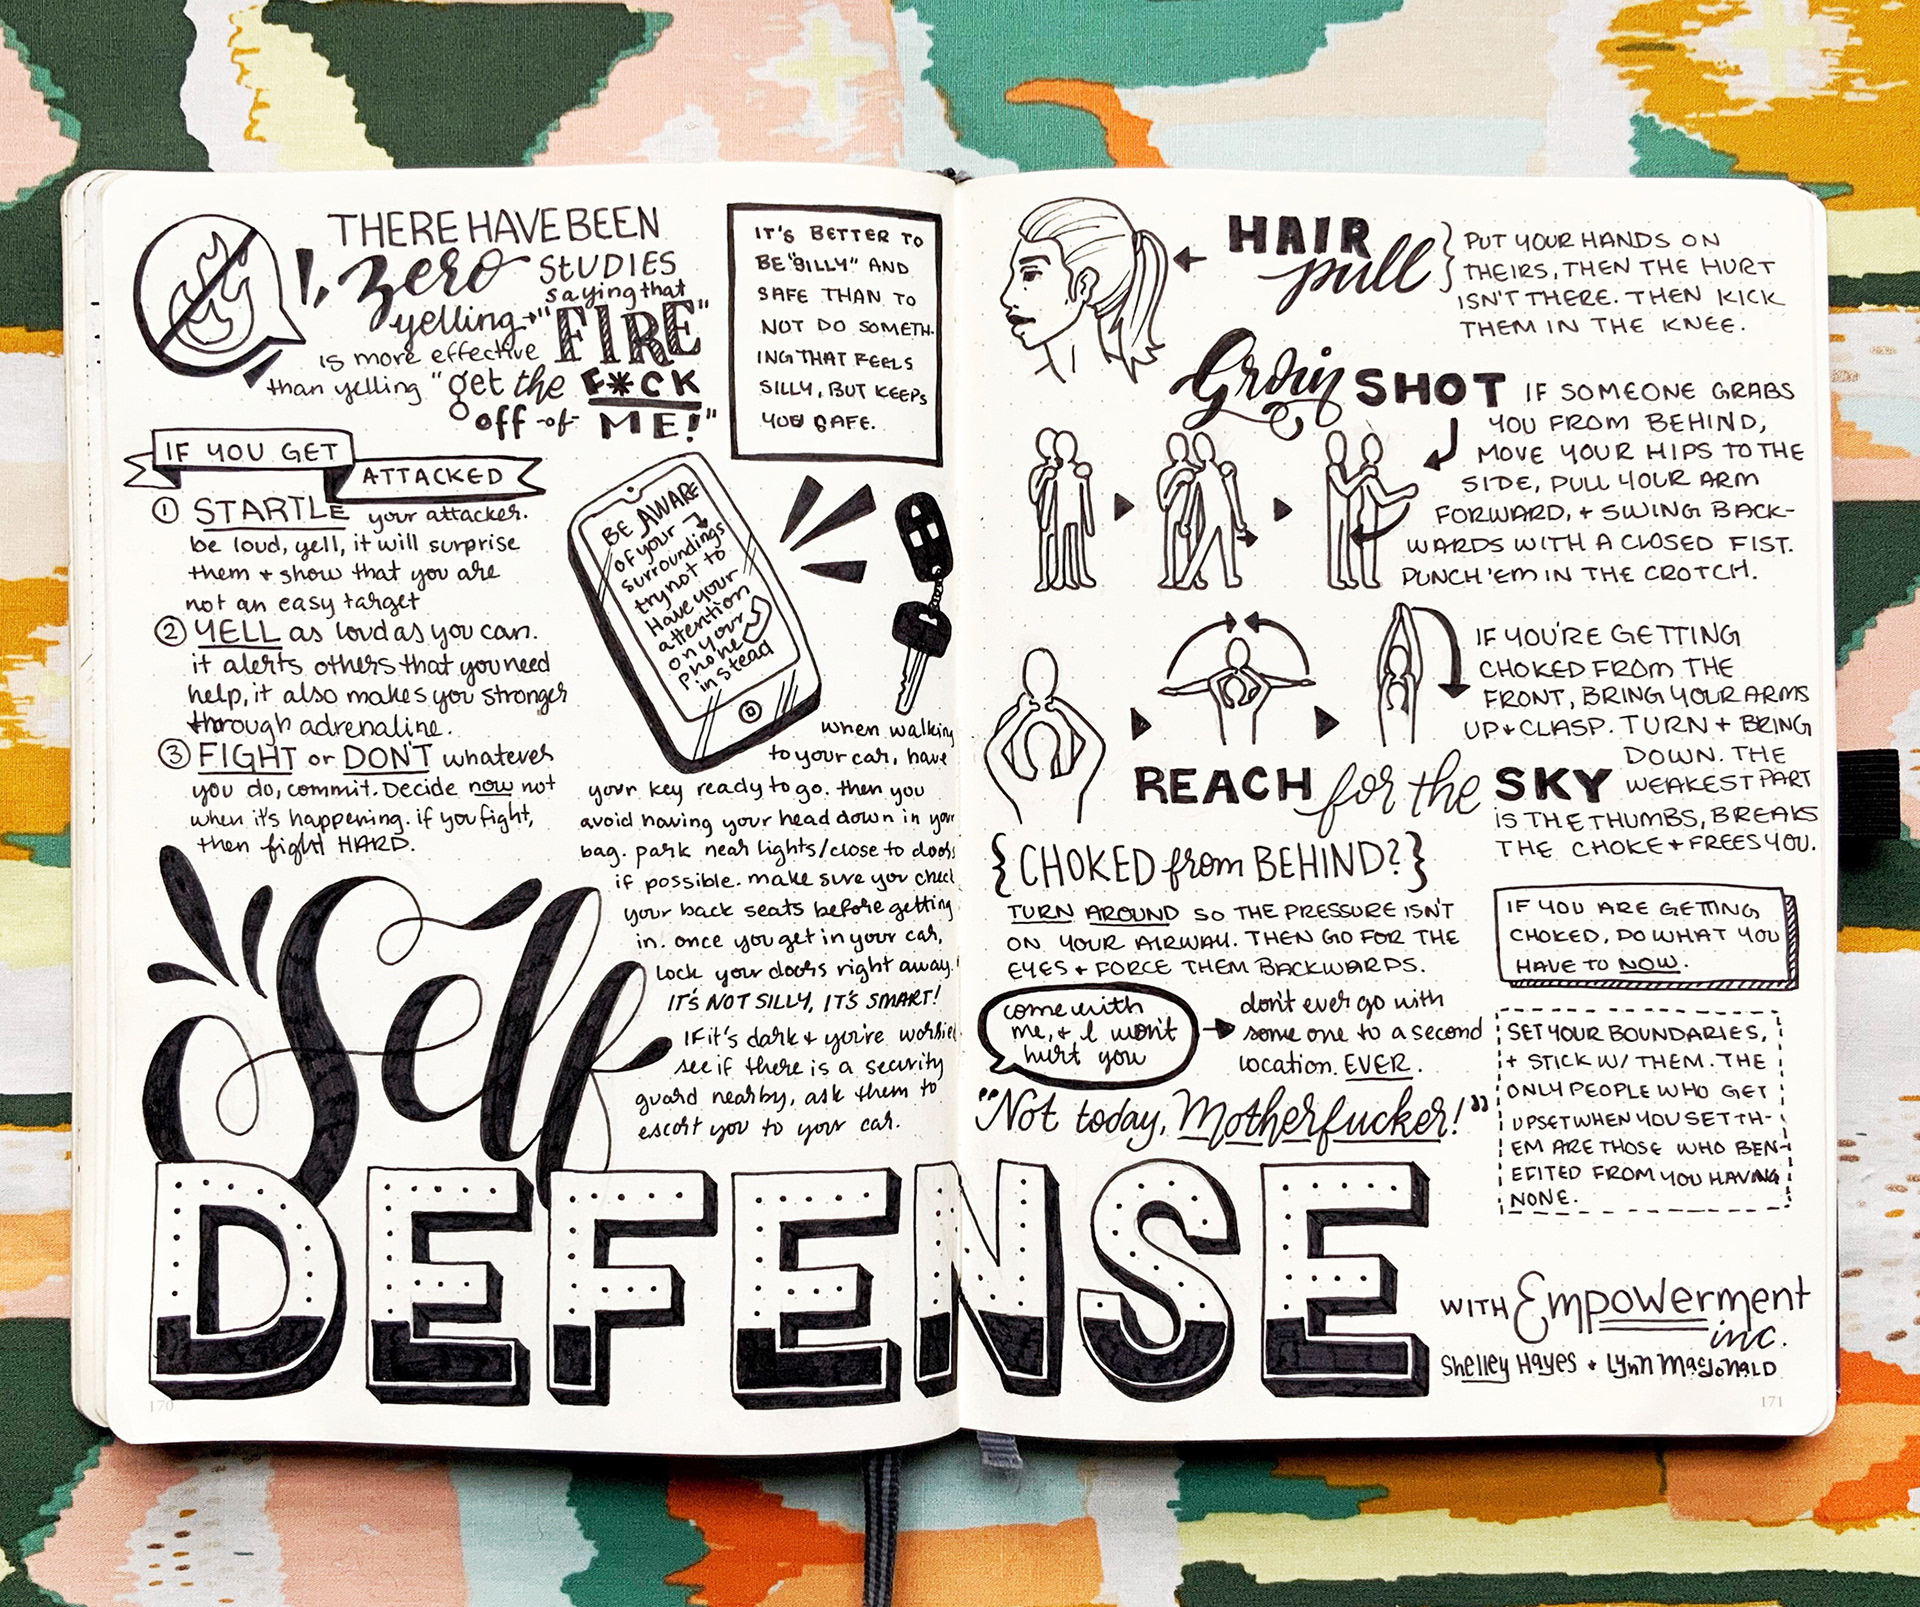 THERE HAVE BEEN
zero STUDIES
saying that
yelling "FIRE"
is more effective
than yelling "get the F*CK
off of ME!"
IT'S BETTER TO
BE "SILLY" AND
SAFE THAN TO
NOT DO SOMETH-
ING THAT FEELS
SILLY, BUT KEEPS
YOU SAFE.
IF YOU GET
ATTACKED
① STARTLE your attacker.
be loud, yell, it will surprise
them + show that you are
not an easy target
② YELL as loud as you can.
it alerts others that you need
help, it also makes you stronger
through adrenaline.
③ FIGHT or DON'T whatever
you do, commit. Decide now not
when it's happening. if you fight,
then fight HARD.
BE AWARE
of your
surroundings
try not to
Have your
attention
on your
phone
instead
when walking
to your car, have
your key ready to go. then you
avoid having your head down in your
bag. park near lights/close to doors
if possible. make sure you check
your back seats before getting
in. once you get in your car,
lock your doors right away.
IT'S NOT SILLY, IT'S SMART!
If it's dark + you're worried
see if there is a security
guard nearby, ask them to
escort you to your car.
Self
DEFENSE
HAIR
pull
PUT YOUR HANDS ON
THEIRS, THEN THE HURT
ISN'T THERE. THEN KICK
THEM IN THE KNEE.
Groin SHOT
IF SOMEONE GRABS
YOU FROM BEHIND,
MOVE YOUR HIPS TO THE
SIDE, PULL YOUR ARM
FORWARD, + SWING BACK-
WARDS WITH A CLOSED FIST.
PUNCH 'EM IN THE CROTCH.
IF YOU'RE GETTING
CHOKED FROM THE
FRONT, BRING YOUR ARMS
UP + CLASP. TURN + BRING
DOWN. THE
WEAKEST PART
IS THE THUMBS, BREAKS
THE CHOKE + FREES YOU.
REACH for the SKY
{CHOKED from BEHIND?}
TURN AROUND SO THE PRESSURE ISN'T
ON YOUR AIRWAY. THEN GO FOR THE
EYES + FORCE THEM BACKWARDS.
IF YOU ARE GETTING
CHOKED, DO WHAT YOU
HAVE TO NOW.
come with
me, + I won't
hurt you
don't ever go with
some one to a second
location. EVER.
"Not today, Motherfucker!"
SET YOUR BOUNDARIES,
+ STICK W/ THEM. THE
ONLY PEOPLE WHO GET
UPSET WHEN YOU SET TH-
EM ARE THOSE WHO BEN-
EFITED FROM YOU HAVING
NONE.
WITH Empowerment
inc.
Shelley Hayes + Lynn MacDonald
170
171